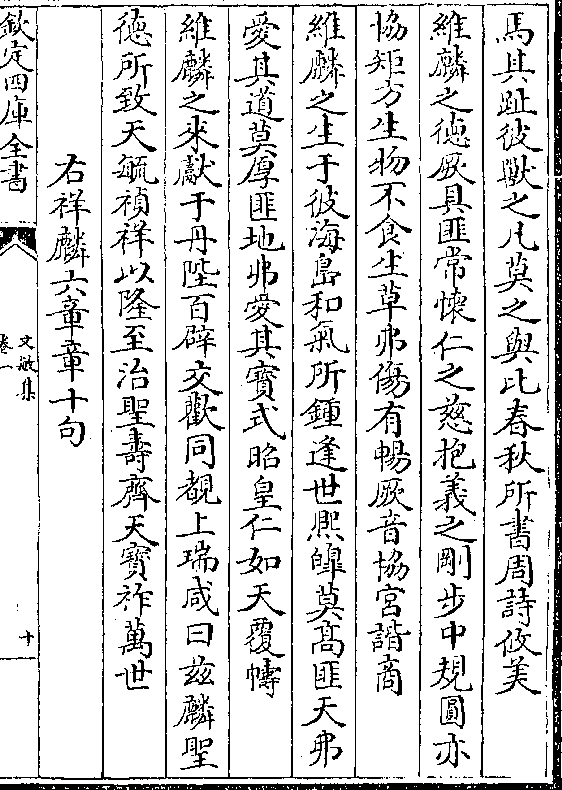 馬其趾彼獸之凡莫之與比春秋所書周詩攸美
維麟之德厥具匪常懐仁之慈抱義之剛步中規圓亦
協矩方生物不食生草弗傷有暢厥音協宮諧商
維麟之生于彼海島和氣所鍾逢世熈皥莫髙匪天弗
愛其道莫厚匪地弗愛其寶式昭皇仁如天覆幬
維麟之來獻于丹陛百辟交歡同覩上瑞咸曰兹麟聖
徳所致天毓禎祥以隆至治聖壽齊天寶祚萬世
右祥麟六章章十句
欽定四庫全書
文敏集
卷一
十